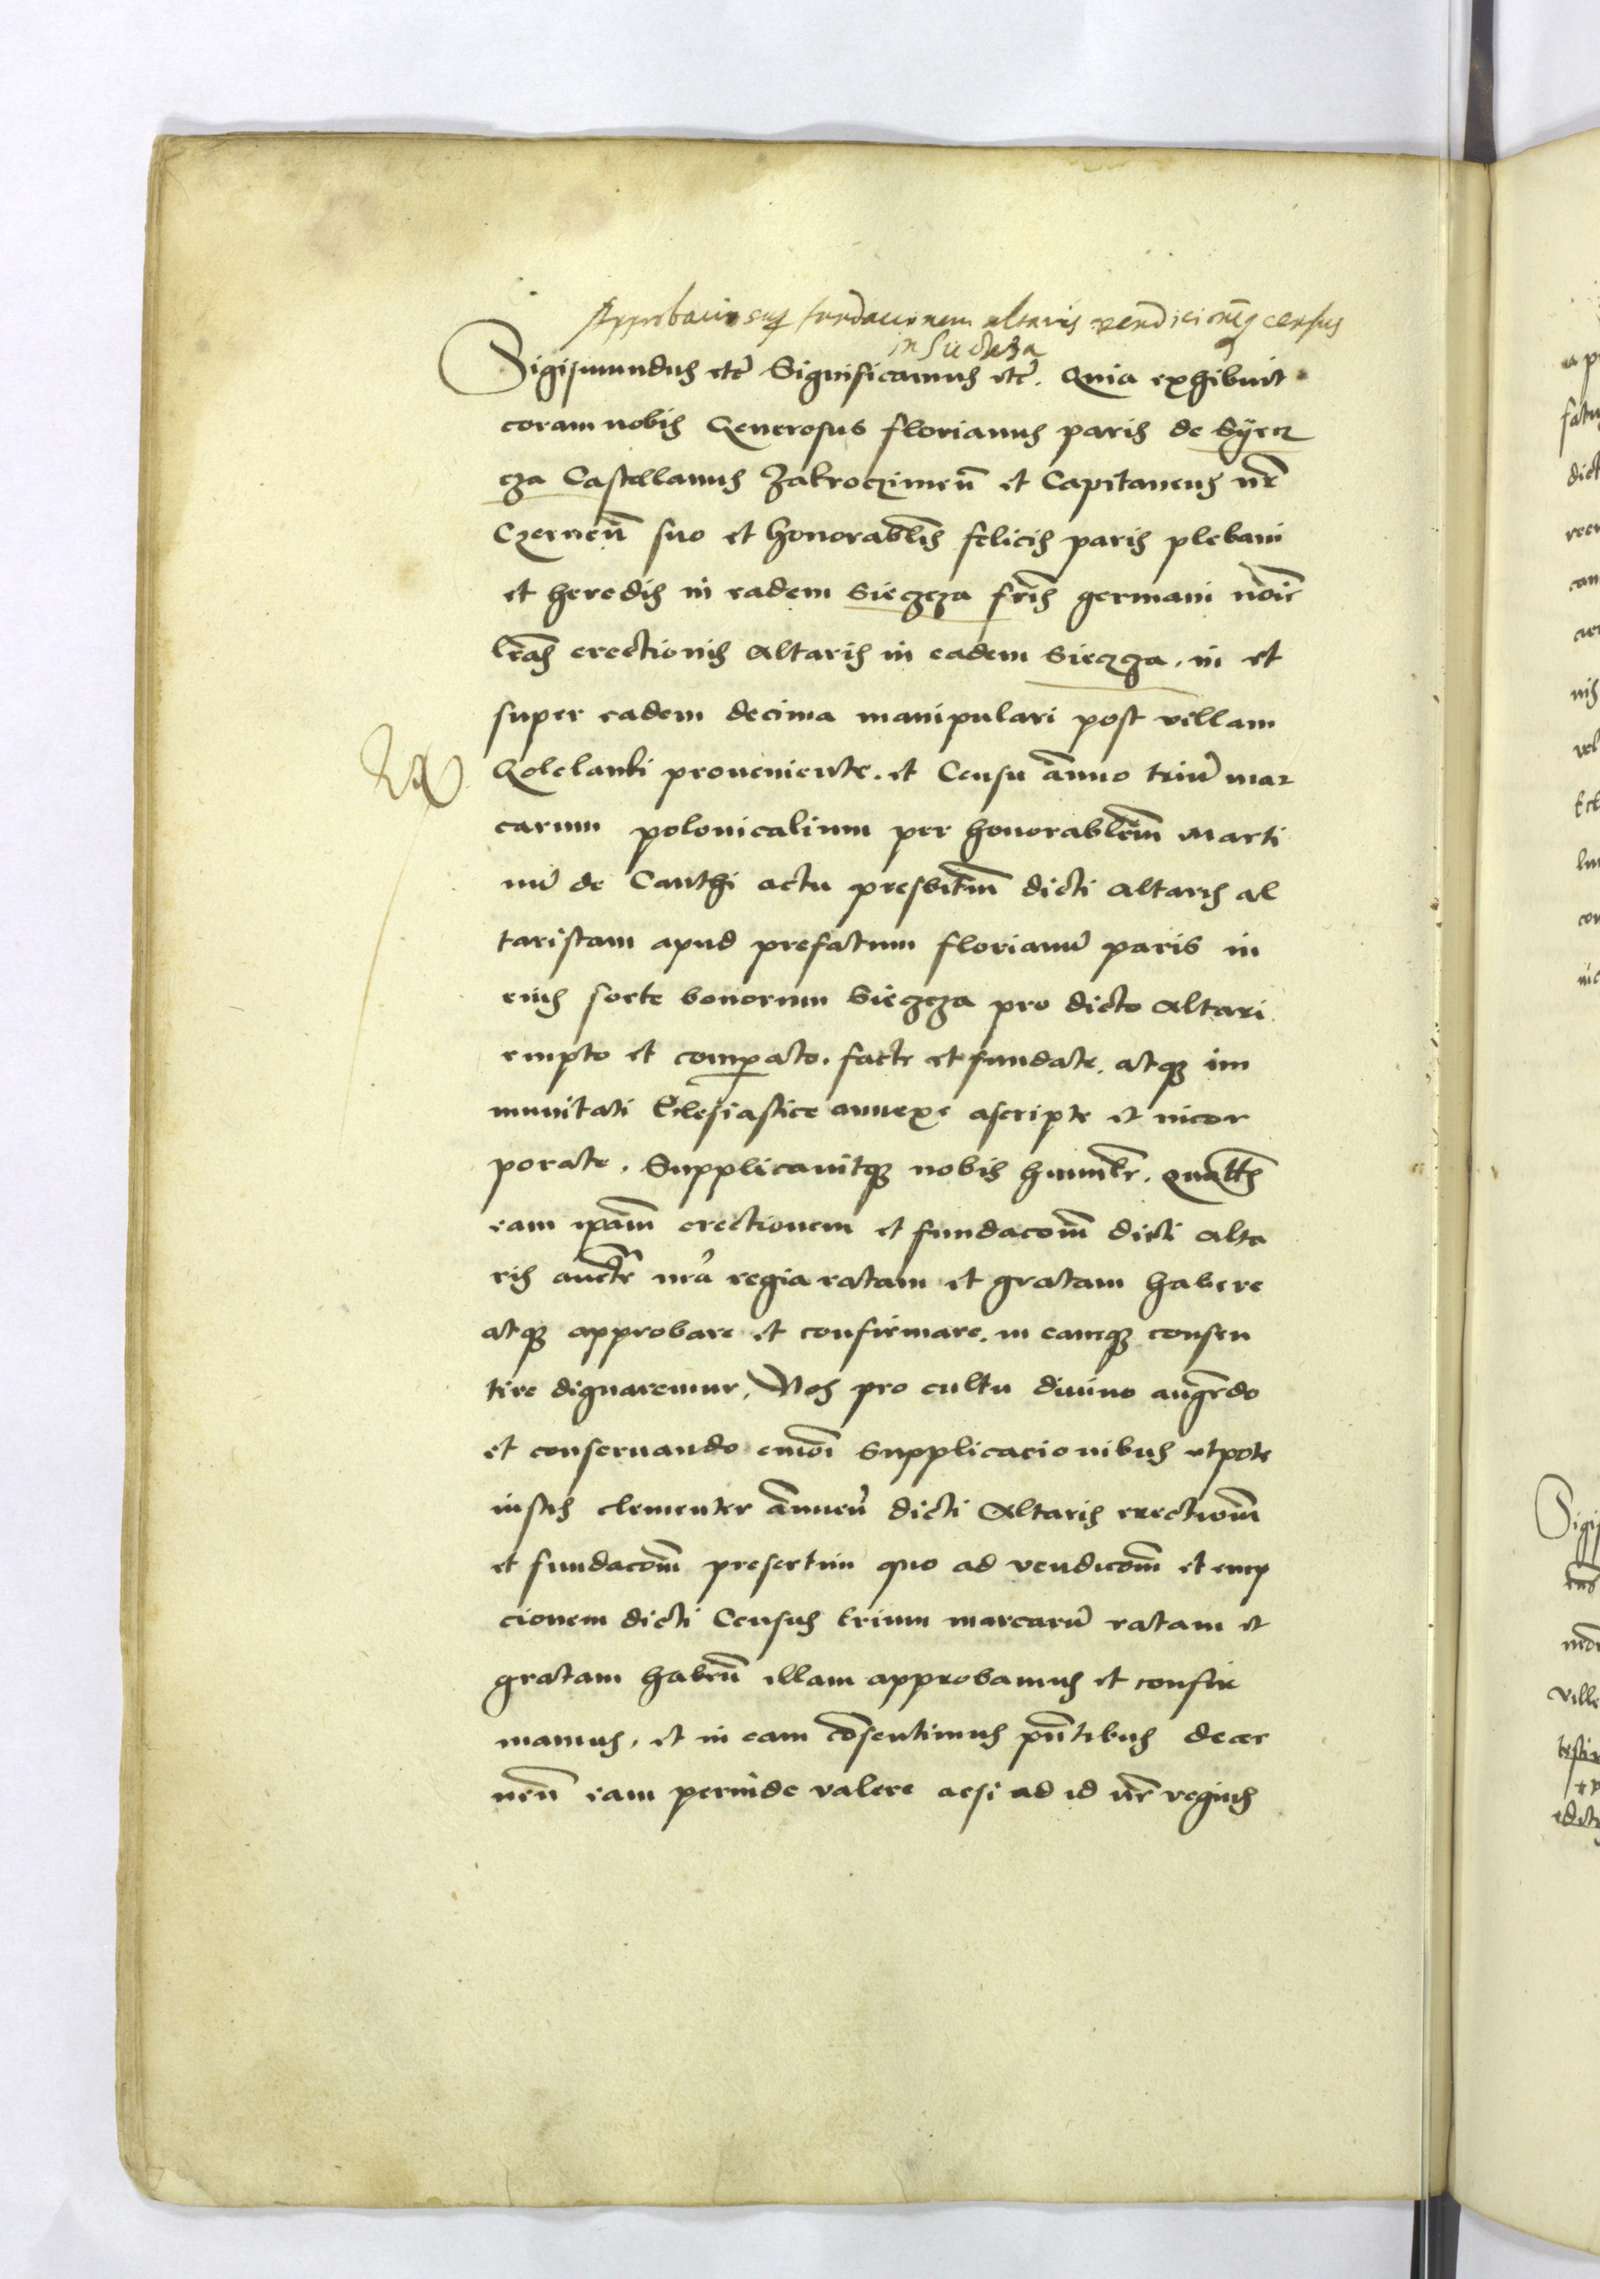 Approbacio super fundacionem altaris vendicionisque census
in Sieczcza
Sigismundus etc̄ Significamus etc̄. Quia exhibuit
coram nobis Generosus florianus paris de Syecz
cza Castellanus Zakroczimeñ et Capitaneus nr̄
Czerneñ suo et honorabilis felicis paris plebani
et heredis in eadem Sieczcza fr̄is germani noīe
lr̄as erectionis altaris in eadem Sieczcza, in et
super eadem decima manipulari post villam
Golelanki proueniente. et Censu añuo triū mar
carum polonicalium per honorablēm Marti
nū de Canthi actu presbitr̄m dicti altaris al
taristam apud prefatum florianū paris in
eius sorte bonorum Sieczcza pro dicto Altari
empto et comparato. facte et fundate. atque im
munitati Ecclesiastice annexe ascripte et incor
porate. Supplicauitque nobis humilr̄. quatt̄s
eam ip̄am erectionem et fundacom̄ dicti alta
ris auctte nr̄a regia ratam et gratam habere
atque approbare et confirmare. in eamque consen
tire dignaremur. Nos pro cultu diuino augēdo
et conseruando eiusmōi Supplicacionibus utpote
iustis clementer añueñ dicti Altaris erectiom̄
et fundacom̄ presertim quo ad vendicom̄ et emp
cionem dicti Census trium marcarū ratam et
gratam habeñ illam approbamus et confir
mamus, et in eam cōsentimus pn̄tibus decer
neñ eam perinde valere acsi ad id nr̄ regius